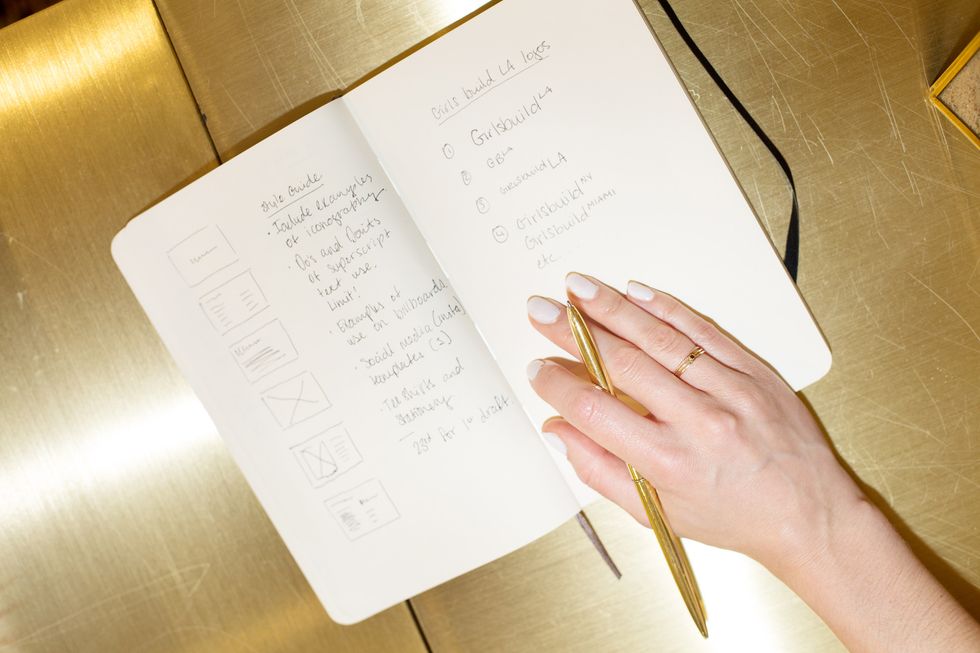 Style Guide
· Include examples
of iconography
· Do's and Don'ts
of superscript
text use.
Limit!
· Examples of
use on billboards
· Social media (insta)
templates (5)
· Tee shirts and
stationery
23rd for 1st draft.
Girls build LA logos
① Girlsbuild LA
② GBLA
③ GIRLSbuild LA
④ Girlsbuild NY
Girlsbuild MIAMI
etc.